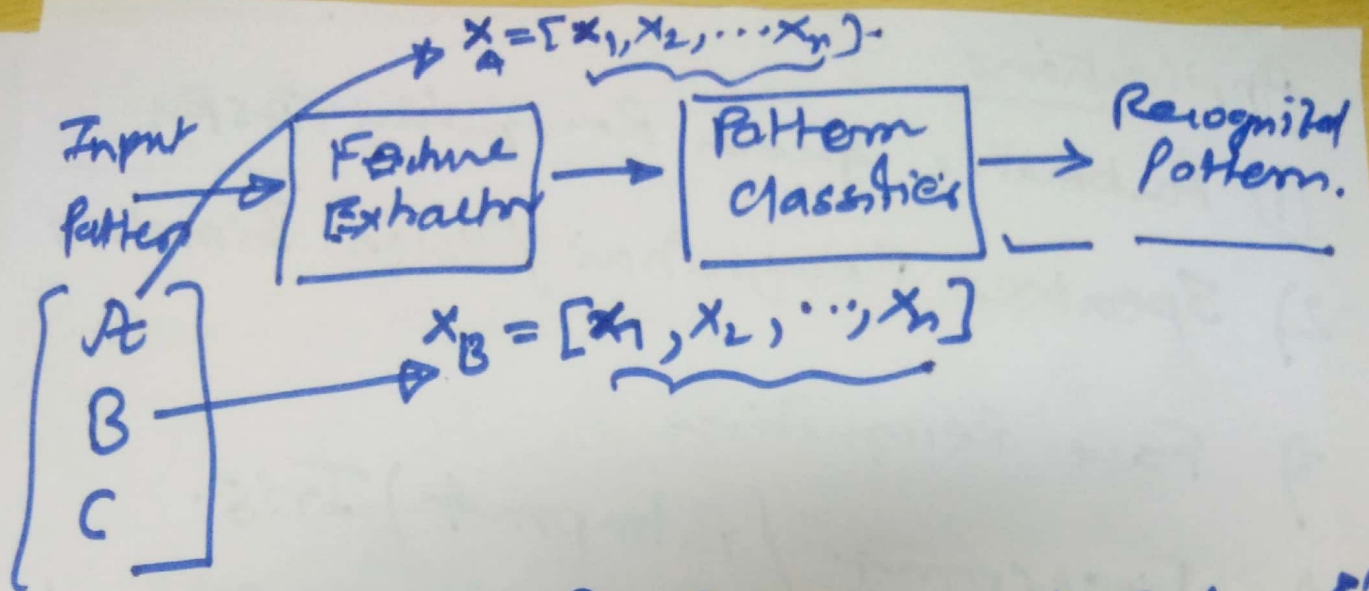 X_A = [x1, x2, ... xn].
Input
Pattern
Feature
Extractor
Pattern
Classifier
Recognized
Pattern.
A
B
C
X_B = [x1, x2, ..., xn]